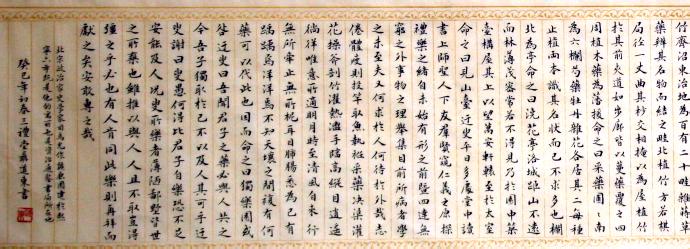 竹齋沼東治地為百有二十畦雜蒔草
藥辨其名物而揭之畦北植竹方若棋
局徑一丈曲其杪交相掩以為屋植竹
於其前夾道如步廊皆以蔓藥覆之四
周植木藥為藩援命之曰采藥圃圃南
為六欄芍藥牡丹雜花各居其二每種
止植兩本識其名狀而已不求多也欄
北為亭命之曰澆花亭洛城距山不遠
而林薄茂密常若不得見乃於園中築
臺構屋其上以望萬安軒轅至於太室
命之曰見山臺迂叟平日多處堂中讀
書上師聖人下友群賢窺仁義之原探
禮樂之緒自未始有形之前暨四達無
窮之外事物之理舉集目前所病者學
之未至夫又何求於人何待於外哉志
倦體疲則投竿取魚執衽采藥決渠灌
花操斧剖竹濯熱盥手臨高縱目逍遙
徜徉唯意所適明月時至清風自來行
無所牽止無所柅耳目肺腸悉為己有
踽踽焉洋洋焉不知天壤之間復有何
藥可以代此也因而命之曰獨樂園或
咎迂叟曰吾聞君子之藥必與人共之
今吾子獨取於己不以及人其可乎迂
叟謝曰叟愚何得比君子自樂恐不足
安能及人況叟所樂者薄陋鄙野皆世
之所棄也雖推以與人人且不取豈得
強之乎必也有人肯同此樂則再拜而
獻之矣安敢專之哉
北宋政治家史學家司馬光作獨樂園建於熙
寧六年既是他的寓所也是資治通鑒書局所在地
癸巳年初春三禮堂 道東書